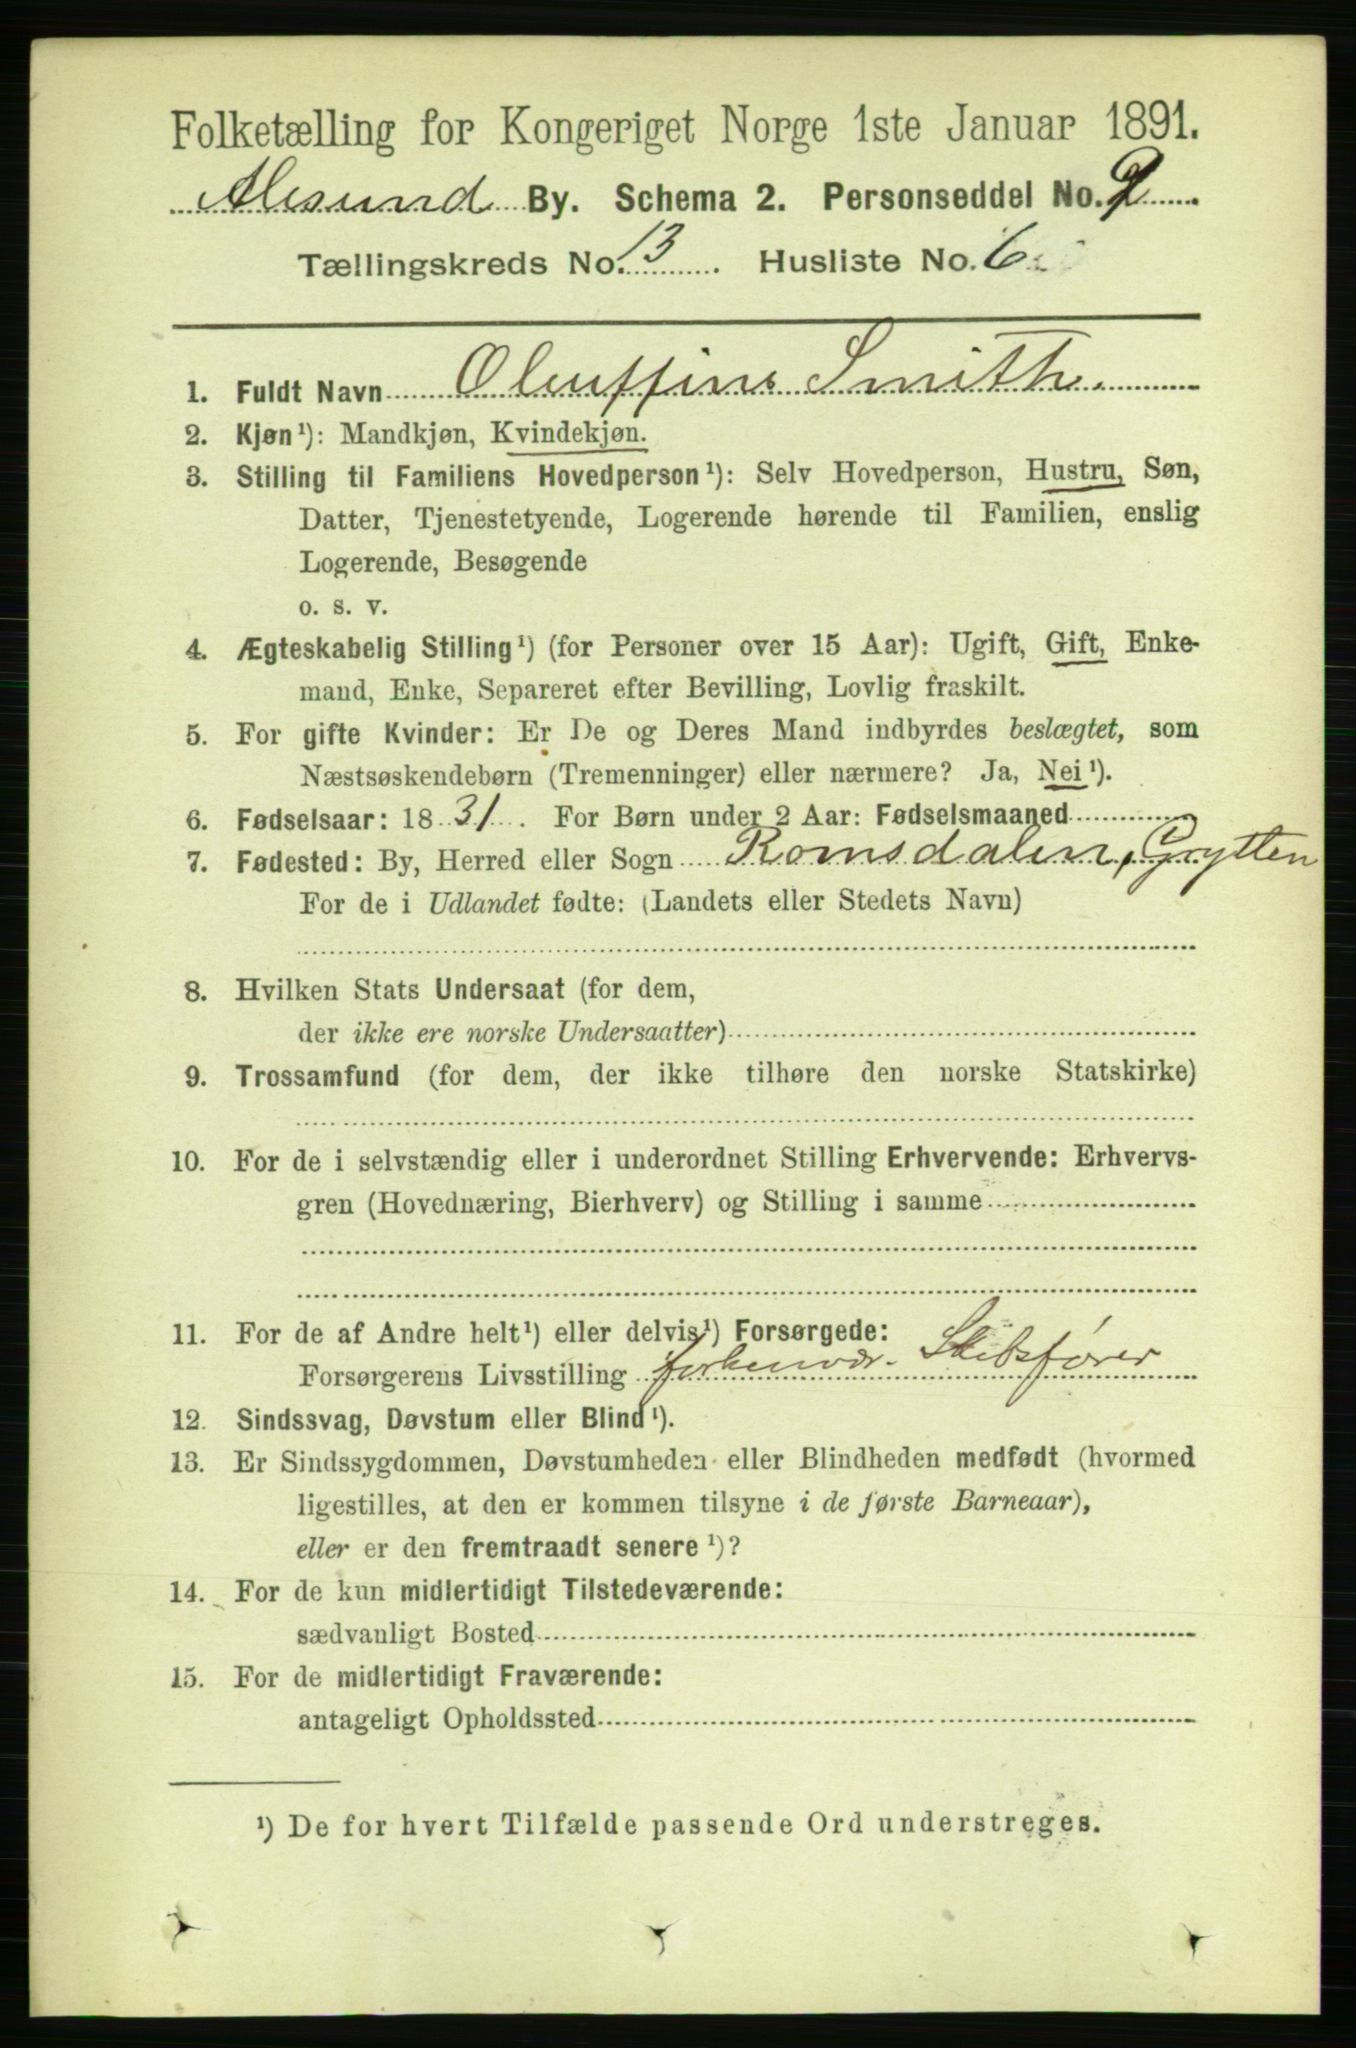 Folketælling for Kongeriget Norge 1ste Januar 1891.
Alesund By. Schema 2. Personseddel No. 2
Tællingskreds No. 13. Husliste No. 6
1. Fuldt Navn Oluffine Smith.
2. Kjøn¹): Mandkjøn, Kvindekjøn.
3. Stilling til Familiens Hovedperson¹): Selv Hovedperson, Hustru, Søn,
Datter, Tjenestetyende, Logerende hørende til Familien, enslig
Logerende, Besøgende
o. s. v.
4. Ægteskabelig Stilling¹) (for Personer over 15 Aar): Ugift, Gift, Enke-
mand, Enke, Separeret efter Bevilling, Lovlig fraskilt.
5. For gifte Kvinder: Er De og Deres Mand indbyrdes beslægtet, som
Næstsøskendebørn (Tremenninger) eller nærmere? Ja, Nei¹).
6. Fødselsaar: 1831. For Børn under 2 Aar: Fødselsmaaned
7. Fødested: By, Herred eller Sogn Romsdalen, Grytten
For de i Udlandet fødte: (Landets eller Stedets Navn)
8. Hvilken Stats Undersaat (for dem,
der ikke ere norske Undersaatter)
9. Trossamfund (for dem, der ikke tilhøre den norske Statskirke)
10. For de i selvstændig eller i underordnet Stilling Erhvervende: Erhvervs-
gren (Hovednæring, Bierhverv) og Stilling i samme
11. For de af Andre helt¹) eller delvis¹) Forsørgede:
Forsørgerens Livsstilling forhenvær. Skibsfører
12. Sindssvag, Døvstum eller Blind¹).
13. Er Sindssygdommen, Døvstumheden eller Blindheden medfødt (hvormed
ligestilles, at den er kommen tilsyne i de første Barneaar),
eller er den fremtraadt senere¹)?
14. For de kun midlertidigt Tilstedeværende:
sædvanligt Bosted
15. For de midlertidigt Fraværende:
antageligt Opholdssted
¹) De for hvert Tilfælde passende Ord understreges.